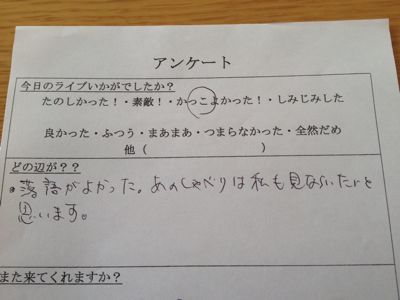 アンケート
今日のライブいかがでしたか？
たのしかった！・素敵！・かっこよかった！・しみじみした
良かった・ふつう・まあまあ・つまらなかった・全然だめ
他（　　　　　　　　　）
どの辺が？？
・落語がよかった。あのしゃべりは私も見ならいたいと
思います。
また来てくれますか？